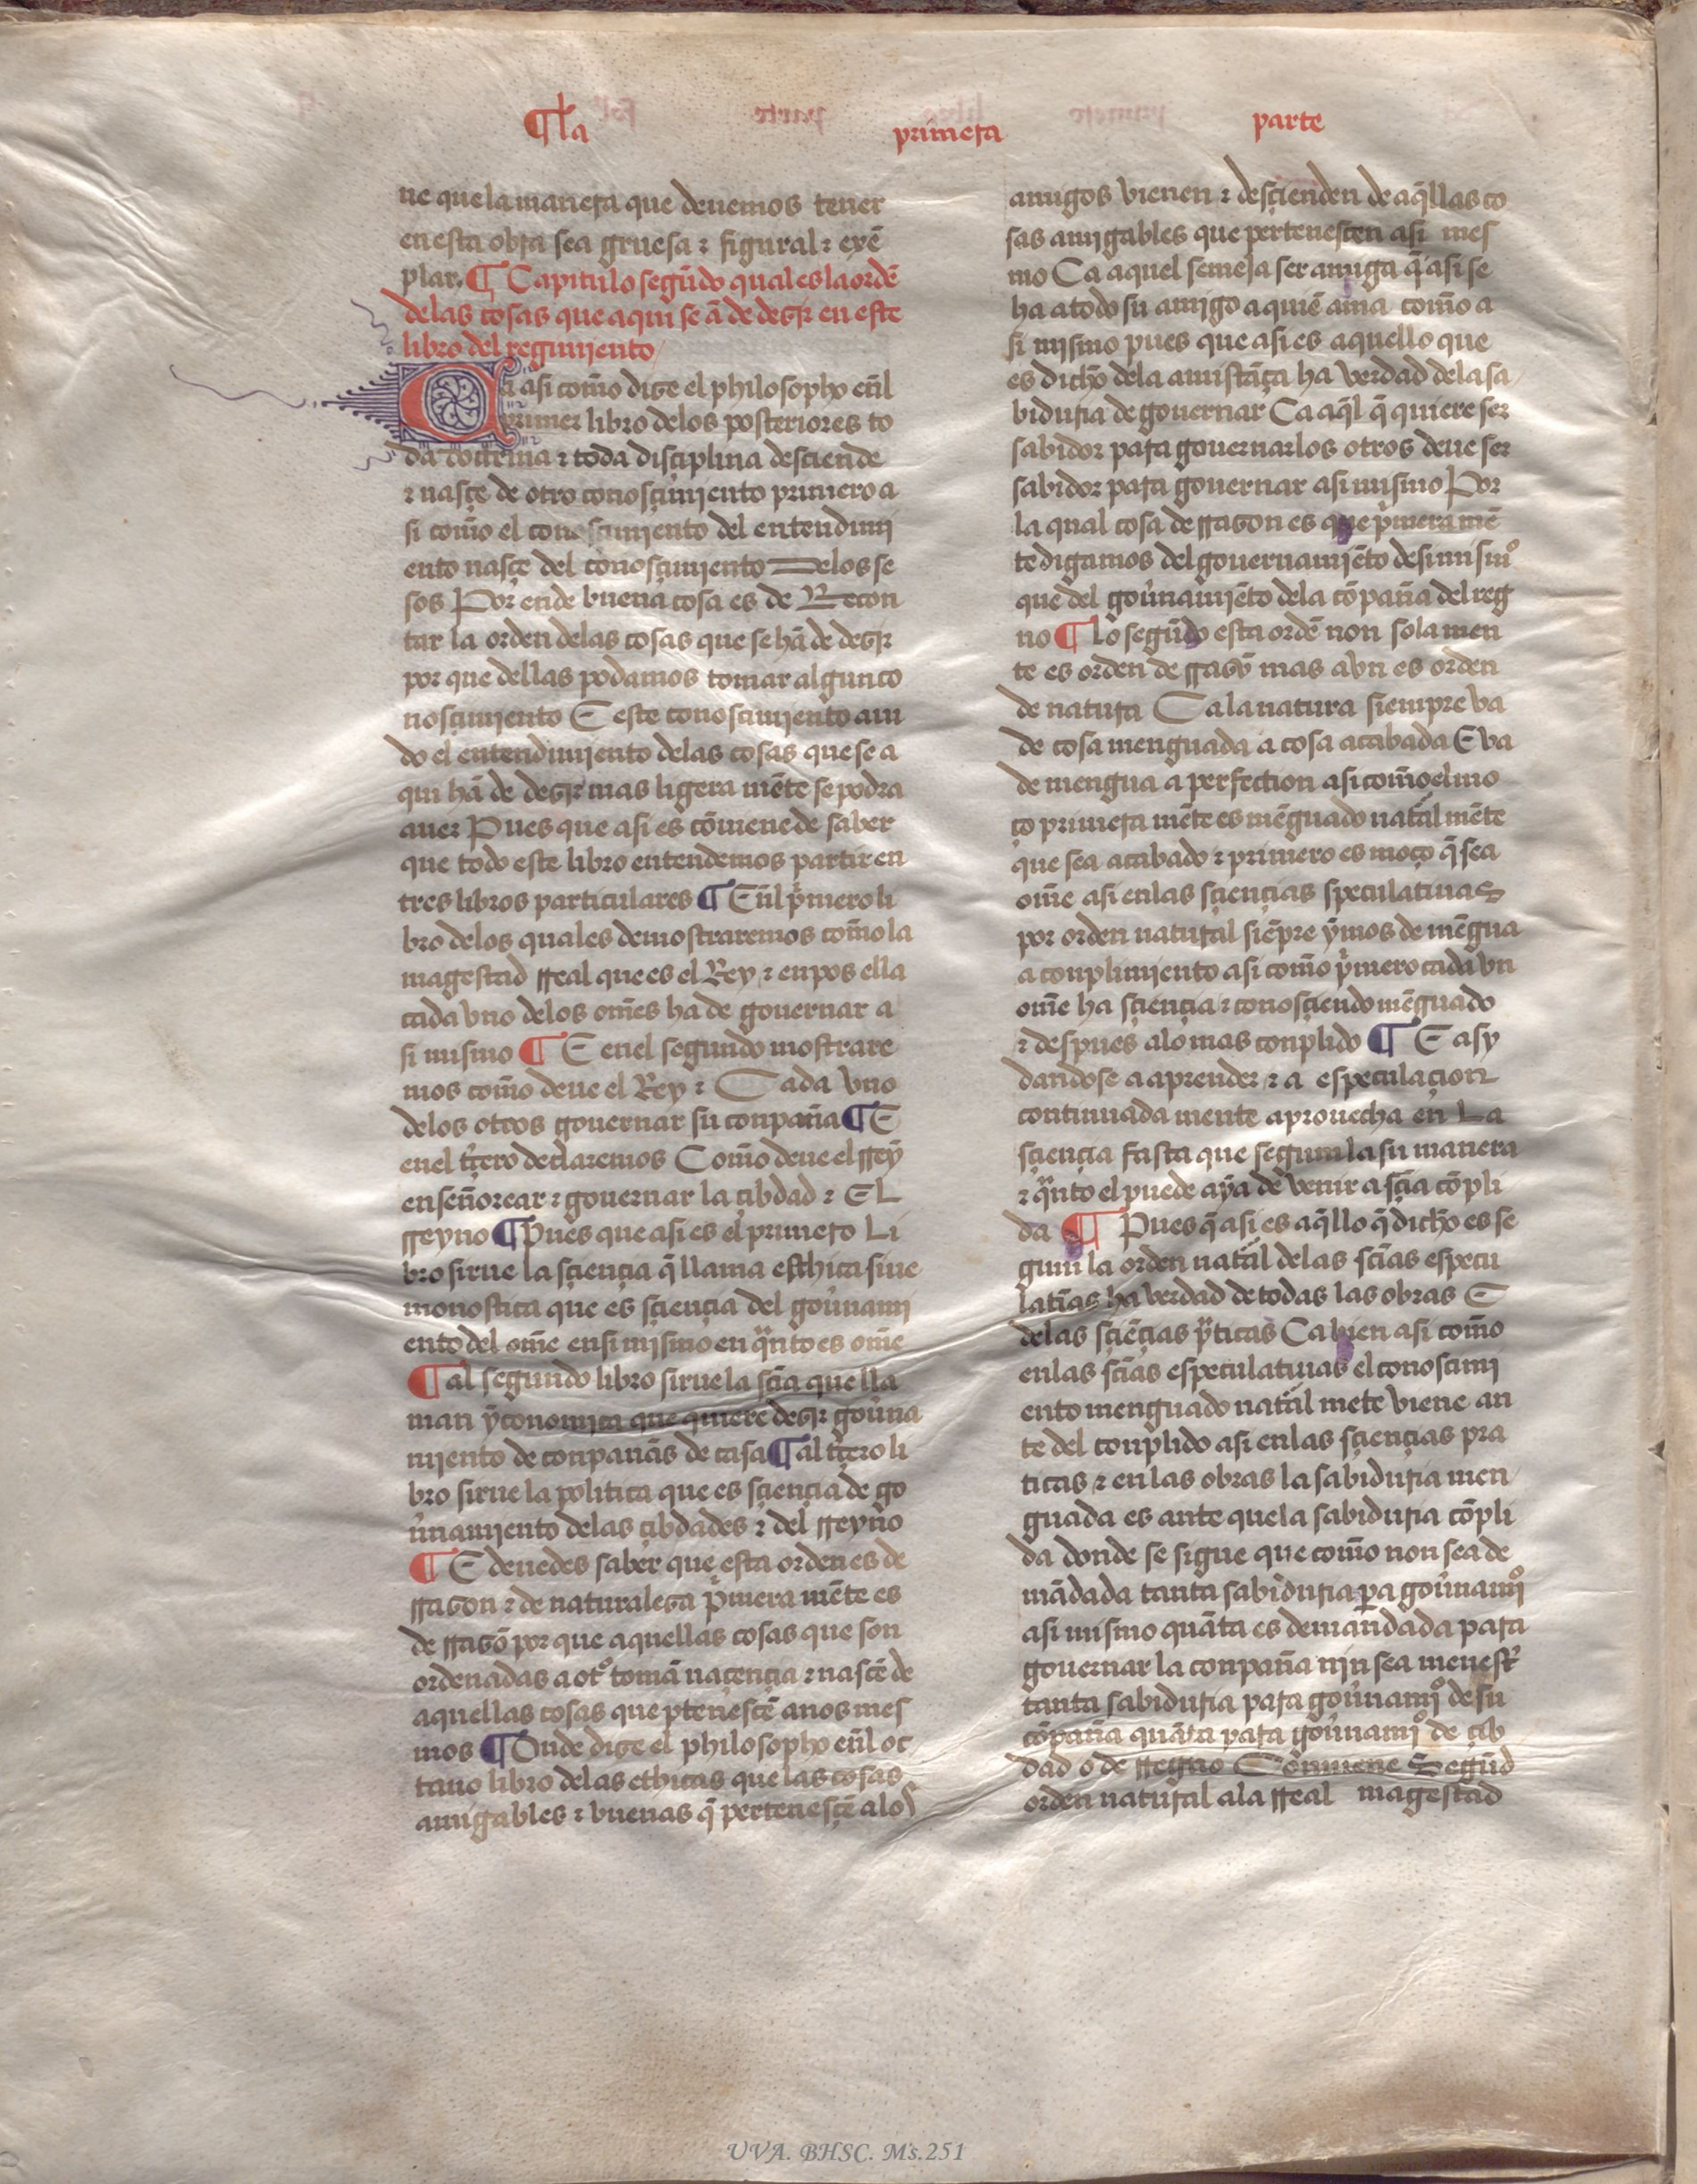 ¶ la primera parte
ne que la manera que deuemos tener
en esta obra sea gruesa ⁊ figural ⁊ exẽ
plar. ¶ Capitulo segũdo qual es la ordẽ
de las cosas que aqui se ã de dezir en este
libro del regimiento
Ca asi com̃o dize el philosopho eñl
primer libro delos posteriores to
da doctrina ⁊ toda disçiplina desciende
⁊ nasçe de otro conosçimiento primero a
si com̃o el conoscimiento del entendimi
ento nasçe del conosçimiento Delos se
sos Por ende buena cosa es de Recon
tar la orden delas cosas que se hã de dezir
por que dellas podamos tomar algun co
nosçimiento E este conoscimiento aui
do el entendimiento delas cosas que se a
qui hã de dezir mas ligera mẽte se podra
auer Pues que asi es cõuiene de saber
que todo este libro entendemos partir en
tres libros particulares ¶ Eñl p̃mero li
bro delos quales demostraremos com̃o la
magestad rreal que es el Rey ⁊ enpos ella
cada vno delos om̃es ha de gouernar a
si mismo ¶ E enel segundo mostrare
mos com̃o deue el Rey ⁊ Cada vno
delos otros gouernar su conpaña ¶ E
enel t̃çero declaremos Com̃o deue el rrey
enseñorear ⁊ gouernar la çibdad ⁊ EL
rreyno ¶ Pues que asi es el primero Li
bro sirue la sçiençia q̃ llama esthica siue
monostica que es sçiençia del goũnami
ento del om̃e ensi mismo en q̃nto es om̃e
¶ al segundo libro sirue la sçia que lla
man ẏconomica que quiere dezir goũna
miento de conpañas de casa ¶ al t̃çero li
bro sirue la politica que es sçiençia de go
ũnamiento delas çibdades ⁊ del rreyno
¶ E deuedes saber que esta orden es de
rrazon ⁊ de naturaleza p̃mera mẽte es
de rrazõ por que aquellas cosas que son
ordenadas a otº tomã naçençia ⁊ nascẽ de
aquellas cosas que ꝑtenescẽ a nos mes
mos ¶ Onde dize el philosopho eñl oc
tauo libro delas ethicas que las cosas
amigables ⁊ buenas q̃ pertenesçẽ alos
amigos vienen ⁊ desçienden de aq̃llas co
sas amigables que pertenesçen asi mes
mo Ca aquel semeja ser amiga q̃ asi se
ha a todo su amigo a quiẽ ama com̃o a
si mismo pues que asi es aquello que
es dicho dela amistãça ha verdad dela sa
biduria de gouernar Ca aq̃l q̃ quiere ser
sabidor para gouernar los otros deue ser
sabidor para gouernar asi mismo Por
la qual cosa de rrazon es que p̃mera mẽ
te digamos del gouernamiẽto de si mismº
que del goũnamiẽto dela cõpaña del reg
no ¶ Lo segũdo esta ordẽ non sola men
te es orden de rrazõ mas avn es orden
de natura Ca la natura siempre va
de cosa menguada a cosa acabada E va
de mengua a perfection asi com̃o el mo
ço primera mẽte es mẽguado natãl mẽte
que sea acabado ⁊ primero es moço q̃ sea
om̃e asi enlas sçiençias speculatiuas
por orden natural siẽpre ẏmos de mẽgua
a conplimiento asi com̃o p̃mero cada vn
om̃e ha sçiençia ⁊ conosçiendo mẽguado
⁊ despues alo mas conplido ¶ E asy
dandose a aprender ⁊ a espeçulaçion
continuada mente aprouecha en La
sçiençia fasta que segun la su manera
⁊ q̃nto el puede aya de venir a sçia cõpli
da ¶ Pues q̃ asi es aq̃llo q̃ dicho es se
gun la orden natãl delas sçias especu
latĩas ha verdad de todas las obras E
delas sçiẽçias p̃ticas Ca bien asi com̃o
enlas sçias especulatiuas el conoscimi
ento menguado natãl mete viene an
te del conplido asi enlas sçiençias pra
ticas ⁊ en las obras la sabiduria men
guada es ante que la sabiduria cõpli
da donde se sigue que com̃o non sea de
mãdada tanta sabiduria ꝑa goũnamiº
asi mismo quãta es demandada para
gouernar la conpaña nin sea menest̃
tanta sabiduria para goũnamiº de su
cõpaña quãta para goũnamiº de çib
dad o de rregno Cõuiene Segũd
orden natural ala rreal magestad
UVA. BHSC. Ms.251